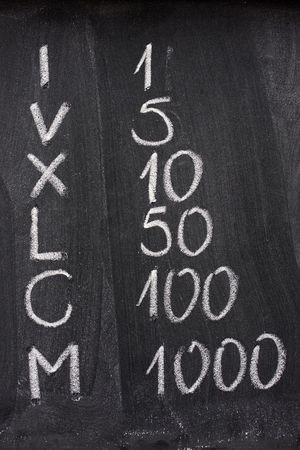 I 1
V 5
X 10
L 50
C 100
M 1000